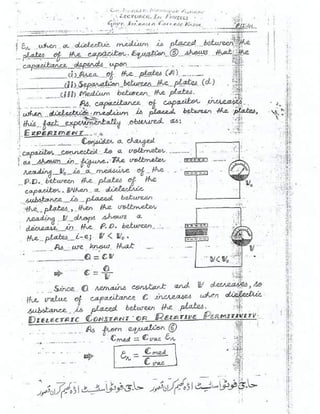 LECTURER IN PHYSICS
εr when a dielectric medium is placed between the
plates of the capacitor. Equation ⑥ shows that the
capacitance depends upon
(i) Area of the plates (A)
(ii) Separation between the plates (d)
(iii) Medium between the plates.
As capacitance of capacitor increases
when dielectric medium is placed between the plates,
this fact experimentally observed as:
EXPERIMENT
Consider a charged
capacitor connected to a voltmeter
as shown in figure. The voltmeter
reading V₀ is a measure of the
P.D. between the plates of the
capacitor. When a dielectric
substance is placed between
the plates, then the voltmeter
reading V drops shows a
decrease in the P.D. between
the plates i-e; V < V₀.
As we know that
Q = CV
⇒ C = Q/V
V<V₀
Since Q remains constant and V decreases, so
the value of capacitance C increases when dielectric
substance is placed between the plates.
DIELECTRIC CONSTANT OR RELATIVE PERMITIVITY
As from equation ⑥
Cmed = Cvac εr
⇒ εr = Cmed/Cvac